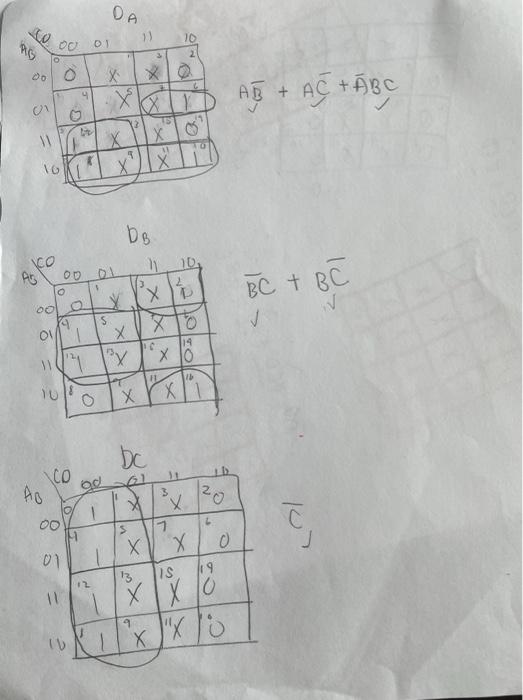 DA
CD
AB
00 01 11 10
00 0 X X 0
01 0 X X 1
11 1 X X 0
10 1 X X 1
AB̅ + AC̅ + A̅BC
DB
CD
AB
00 01 11 10
00 0 X X 1
01 1 X X 0
11 1 X X 0
10 0 X X 1
B̅C + BC̅
DC
CD
AB
00 01 11 10
00 1 X X 0
01 1 X X 0
11 1 X X 0
10 1 X X 0
C̅